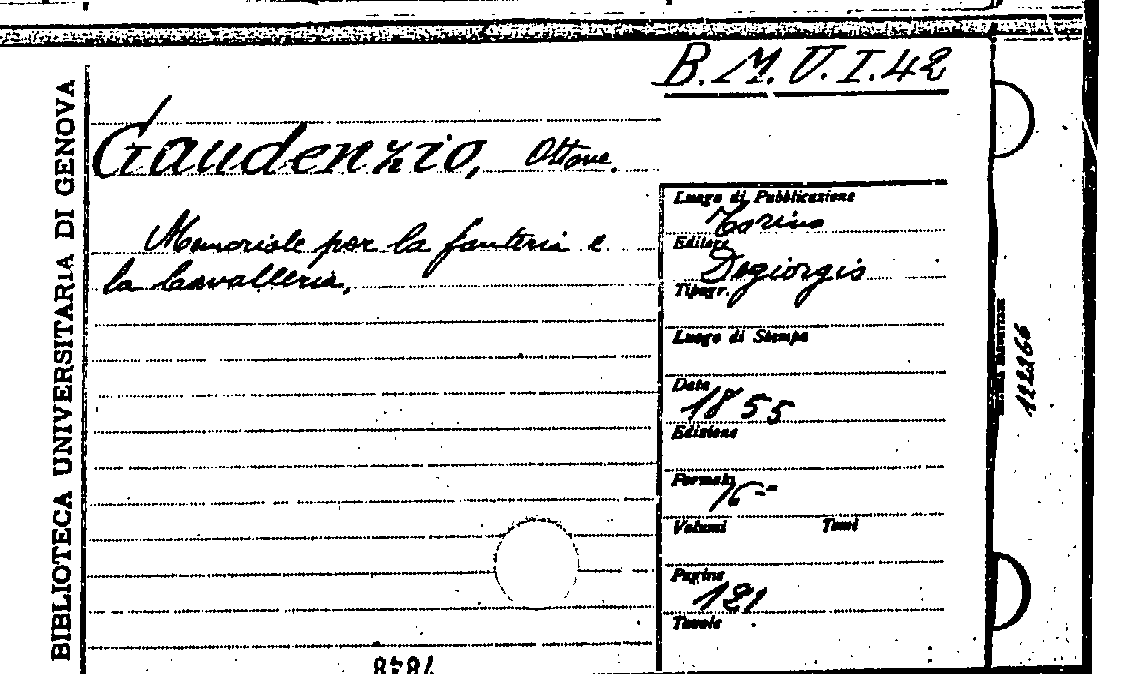 B.M.V.I.42
BIBLIOTECA UNIVERSITARIA DI GENOVA
Gaudenzio, Ottone.
Memoriale per la fanteria e
la Cavalleria.
Luogo di Pubblicazione
Torino
Editore
Degiorgis
Tipogr.
Luogo di Stampa
Data
1855
Edizione
Formato
16-=
Volumi Tomi
Pagine
121
Tavole
122266